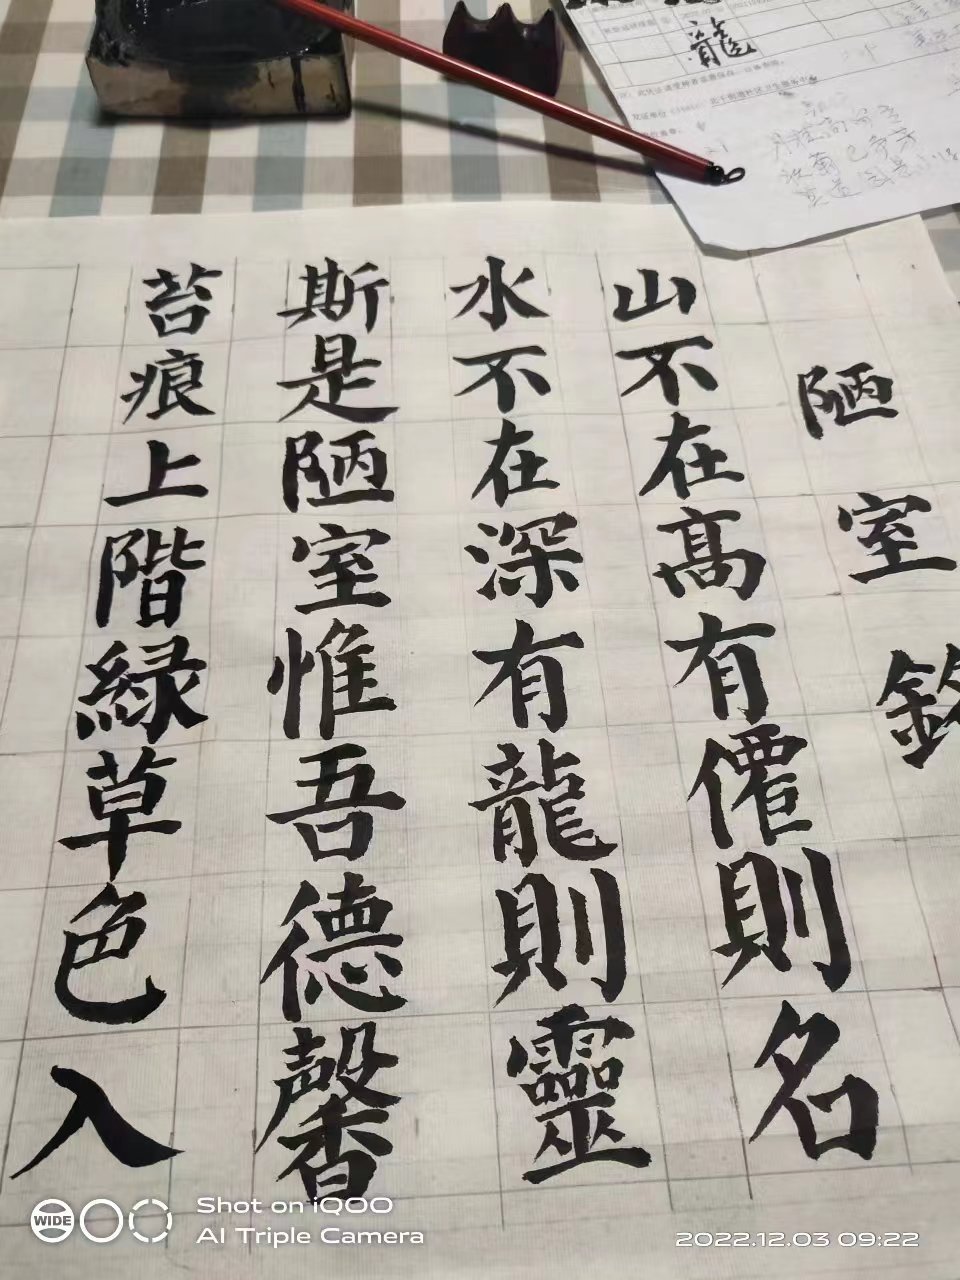 陋室銘
山不在高有僊則名
水不在深有龍則靈
斯是陋室惟吾德馨
苔痕上階緑草色入
龍
WIDE
Shot on iQOO
AI Triple Camera
2022.12.03 09:22